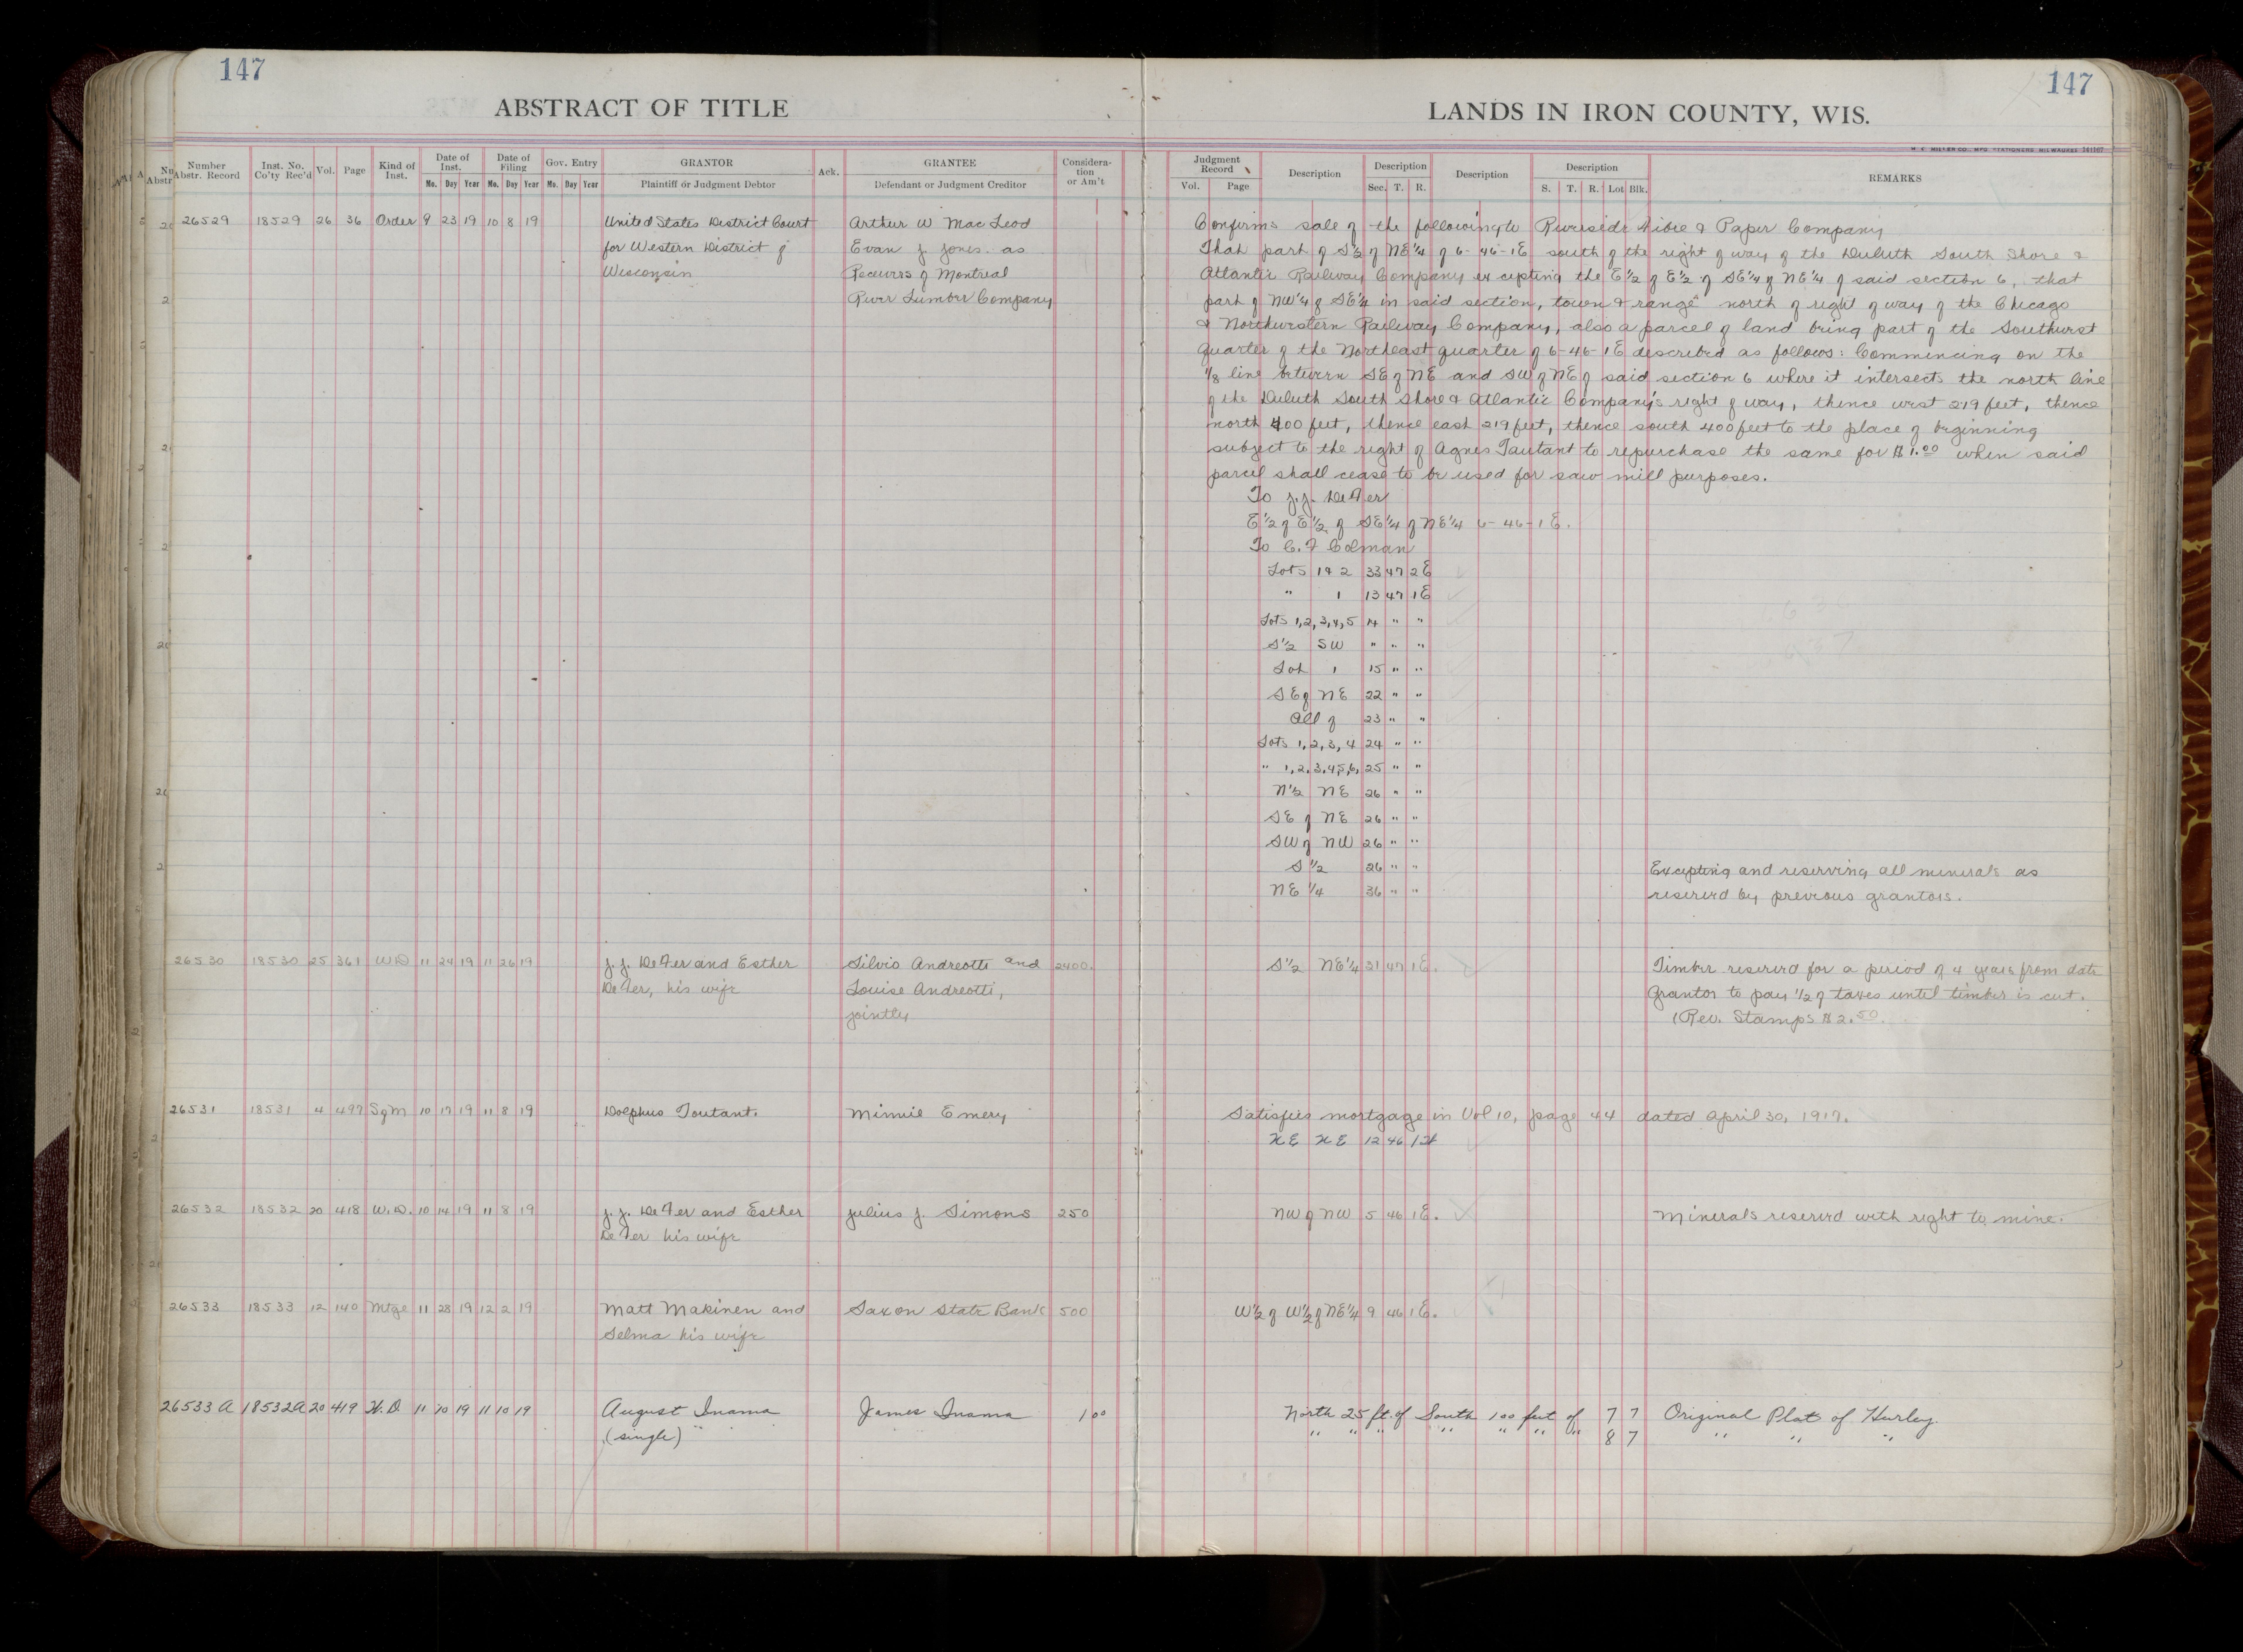 147
147
ABSTRACT OF TITLE
LANDS IN IRON COUNTY, WIS.
H. C. MILLER CO. MFG. STATIONERS MILWAUKEE 141107
Number Abstr. Record | Inst. No. Co'ty Rec'd | Vol. | Page | Kind of Inst. | Date of Inst. Mo. Day Year | Date of Filing Mo. Day Year | Gov. Entry Mo. Day Year | GRANTOR Plaintiff or Judgment Debtor | Ack. | GRANTEE Defendant or Judgment Creditor | Considera-tion or Am't | Judgment Record Vol. Page | Description | Description Sec. T. R. | Description | Description S. T. R. Lot Blk. | REMARKS
26529 18529 26 36 Order 9 23 19 10 8 19 United States District Court Arthur W Mac Leod Confirms sale of the following to Riverside Fibre & Paper Company
for Western District of Evan J. Jones. as That part of S½ of NE¼ of 6-46-1E south of the right of way of the Duluth South Shore &
Wisconsin Receivers of Montreal Atlantic Railway Company excepting the E½ of E½ of SE¼ of NE¼ of said section 6, that
River Lumber Company part of NW¼ of SE¼ in said section, town & range north of right of way of the Chicago
& Northwestern Railway Company, also a parcel of land being part of the Southwest
Quarter of the Northeast quarter of 6-46-1E described as follows: Commencing on the
1/8 line between SE of NE and SW of NE of said section 6 where it intersects the north line
of the Duluth South Shore & Atlantic Company's right of way, thence west 219 feet, thence
north 400 feet, thence east 219 feet, thence south 400 feet to the place of beginning
subject to the right of Agnes Tautant to repurchase the same for $1.00 when said
parcel shall cease to be used for saw mill purposes.
To J.J. DeFer
E½ of E½ of SE¼ of NE¼ 6-46-1E.
To C. F Colman
Lots 1 & 2 33 47 2E
" 1 13 47 1E
Lots 1,2,3,4,5 14 " "
S½ SW " " "
Lot 1 15 " "
SE of NE 22 " "
All of 23 " "
Lots 1,2,3,4 24 " "
" 1,2,3,4,5,6, 25 " "
N½ NE 26 " "
SE of NE 26 " "
SW of NW 26 " "
S½ 26 " " Excepting and reserving all minerals as
NE ¼ 36 " " reserved by previous grantors.
26530 18530 25 361 W.D 11 24 19 11 26 19 J. J. DeFer and Esther Silvio Andreotti and 2400. S½ NE¼ 21 47 1E. Timber reserved for a period of 4 years from date
DeFer, his wife Louise Andreotti, Grantor to pay ½ of taxes until timber is cut.
jointly (Rev. Stamps $2.50.
26531 18531 4 497 SgM 10 17 19 11 8 19 Dolphus Toutant. Minnie Emery Satisfies mortgage in Vol 10, page 44 dated April 30, 1917.
NE NE 12 46 1W
26532 18532 20 418 W.D. 10 14 19 11 8 19 J. J. DeFer and Esther Julius J. Simons 250 NW of NW 5 46 1E. Minerals reserved with right to mine.
DeFer his wife
26533 18533 12 140 Mtge 11 28 19 12 2 19 Matt Makinen and Saxon State Bank 500 W½ of W½ of NE¼ 9 46 1E.
Selma his wife
26533 A 18532A 20 419 W.D. 11 10 19 11 10 19 August Inama James Inama 1 00 North 25 ft. of South 100 feet of 7 7 Original Plat of Hurley.
(single) " " " " " " " 8 7 " " "